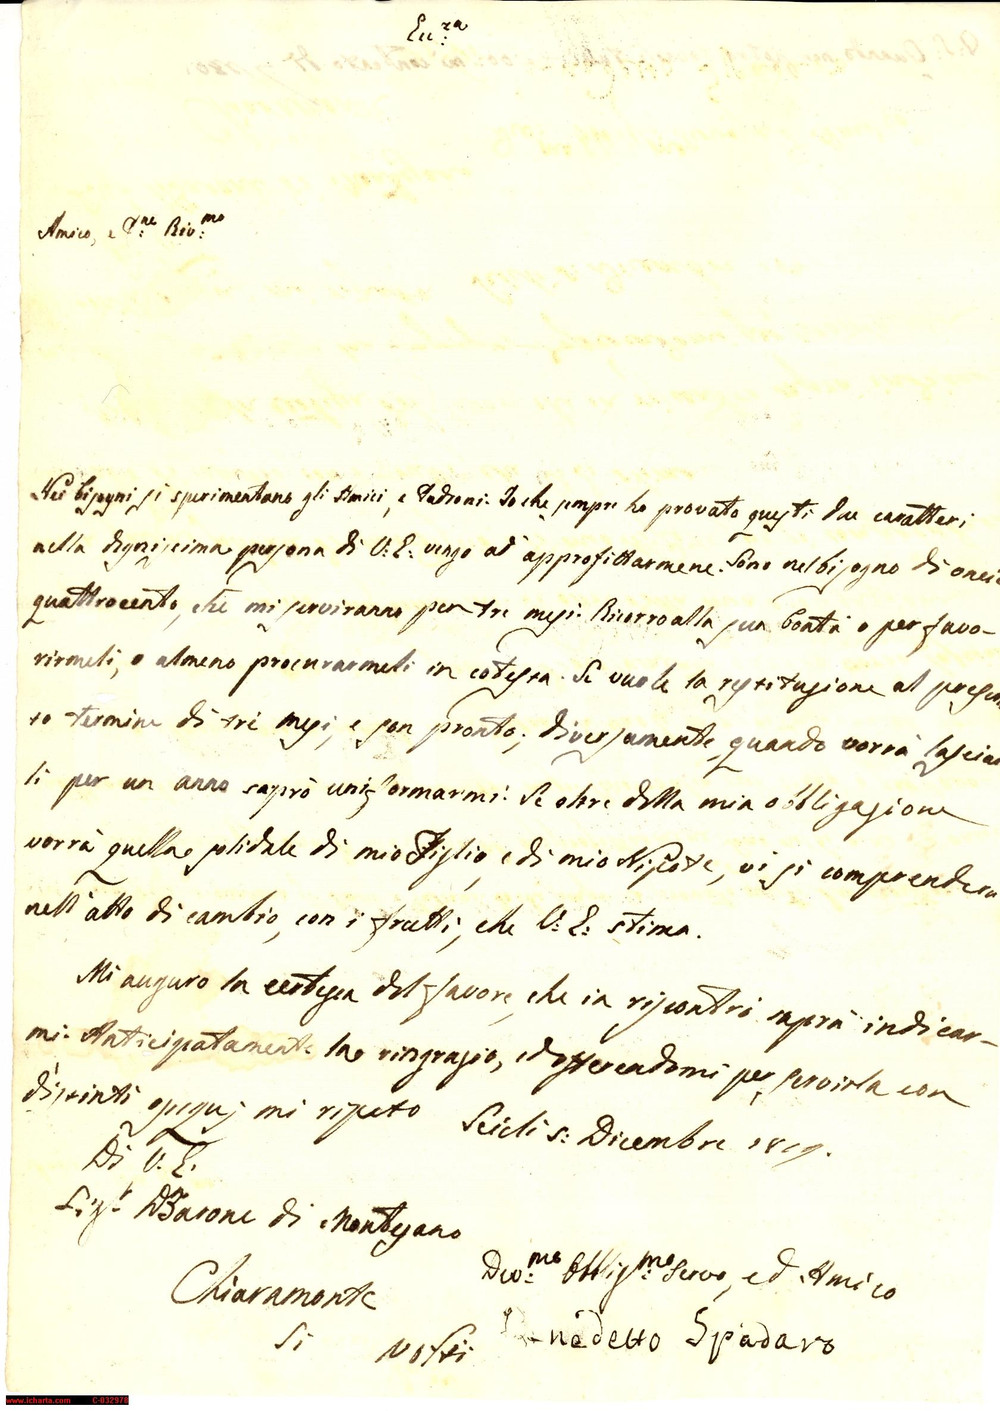 Ecc:za
Amico, e P:ne Riv:mo
Nei bisogni si sperimentano gli Amici, e Padroni. Io che sempre ho provato questi due caratteri
nella dignissima persona di V: E: vengo ad approfittarmene. Sono nel bisogno di oncie
quattrocento, che mi serviranno per tre mesi. Ricorro alla sua bontà o per favo-
rirmeli, o almeno procurarmeli in cotesta. Se vuole la restituzione al prescrit
to termine di tre mesi, e son pronto; diversamente quando vorrà lasciar
li per un anno saprò uniformarmi. Se oltre della mia obbligazione
vorrà quella solidale di mio Figlio, e di mio Nipote, vi si comprenderà
nell'atto di cambio, con i frutti, che V: E: stima.
Mi auguro la certezza del favore, che in riscontri saprà indicar-
mi. Anticipatamente la ringrazio, ed offerendomi per servirla con
distinti ossequj mi ripeto
Scicli 5: Dicembre 1819.
Di V: E.
Sig:r D.n Barone di Montesano
Chiaramonte
Dev:mo Obblig:mo Servo, ed Amico
Benedetto Spadaro
www.icharta.com C-032978